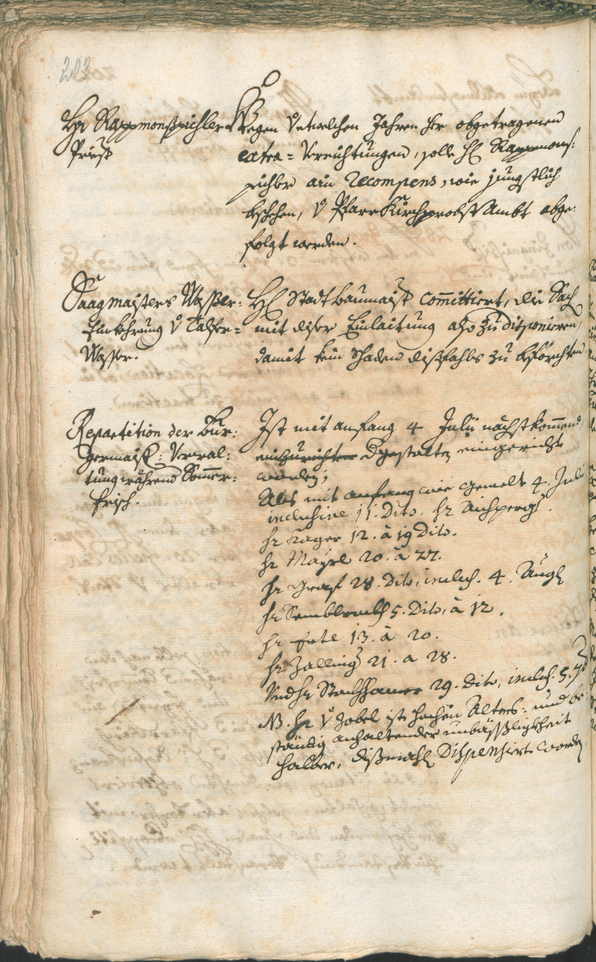 Hr Rappmonspichler
Priest
Wegen Unterschen Jahren hr abgetragenen
extra=Verrichtungen, soll H Rappmons:
pichler ain Recompens, wie jüngstlich
bschehen, V PfarrKirchprobst Ambt abge:
folgt werden.
Saagmaisters Wasser:
Einkehrung V Talfer=
Wasser.
H Stadtbaumaist committiert, die Sach
mit diser Einlaitung also zu disponieren,
damit kein Schaden dissfahls zu beförchten
Repartition der Bur:
germaist: Verwal:
tung während Sommer:
frisch.
Ist mit anfang 4 Julii nächstkommend
dgestalten eingericht
worden;
Als mit anfang wie gemelt 4. Juli
inclusive 11. Dito. hr Aichperg
hr Rager 12. à 19 Dito.
hr Mayrl 20. à 27.
hr Graf 28. Dito, inclus. 4. Augl
hr 5. Dito, à 12.
hr 13. à 20.
hr Zallinger 21. a 28.
Und hr Stachhauer 29. Dito, inclus. 5. 7b
NB. hr V Zobel ist hochen Alters: und be
ständig anhaltender unbässligkheit
halber, dissmahl Dispensirt worden